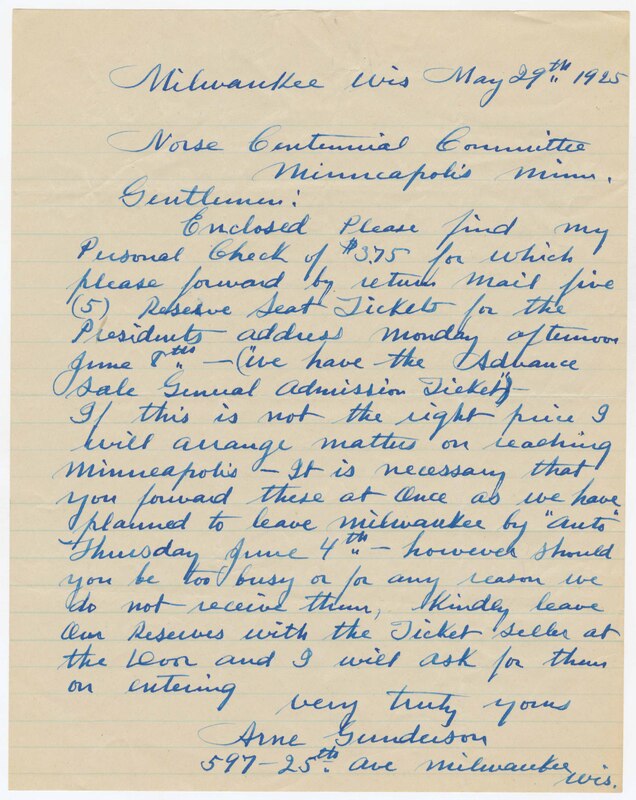 Milwaukee Wis May 29th 1925
Norse Centennial Committee
Minneapolis Minn.
Gentlemen:
Enclosed Please find my
Personal Check of $3.75 for which
please forward by return mail five
(5) Reserve Seat Tickets for the
Presidents address Monday afternoon
June 8th — (We have the Advance
Sale General Admission Tickets)
If this is not the right price I
will arrange matters on reaching
Minneapolis — It is necessary that
you forward these at Once as we have
planned to leave Milwaukee by "auto"
Thursday June 4th — however should
you be too busy or for any reason we
do not receive them, Kindly leave
Our Reserves with the Ticket Seller at
the Door and I will ask for them
on entering
very truly yours
Arne Gunderson
597-25th Ave Milwaukee
Wis.